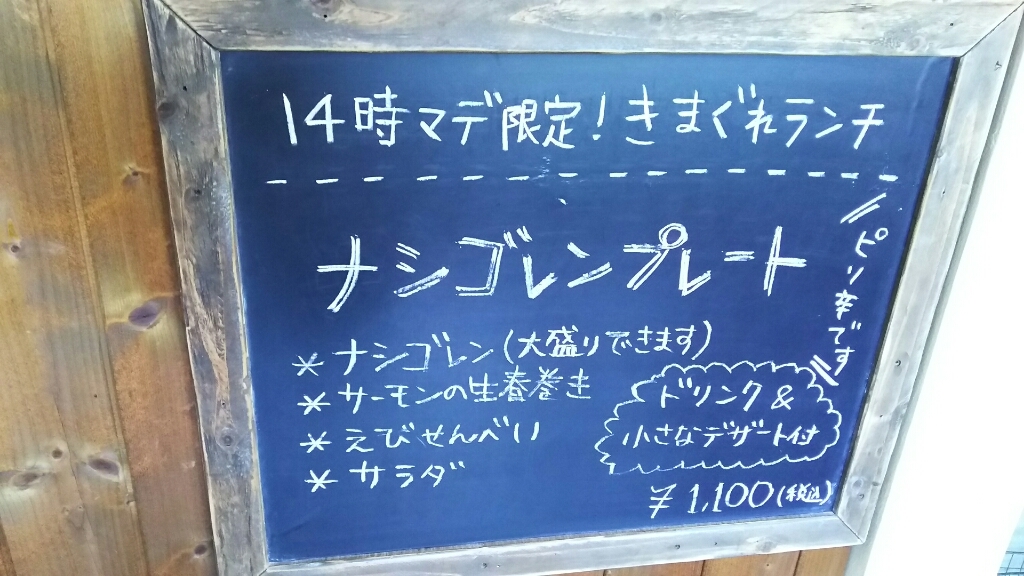 14時マデ限定!きまぐれランチ
ナシゴレンプレート
ピリ辛です
*ナシゴレン(大盛りできます)
*サーモンの生春巻き
*えびせんべい
*サラダ
ドリンク&
小さなデザート付
¥1,100(税込)